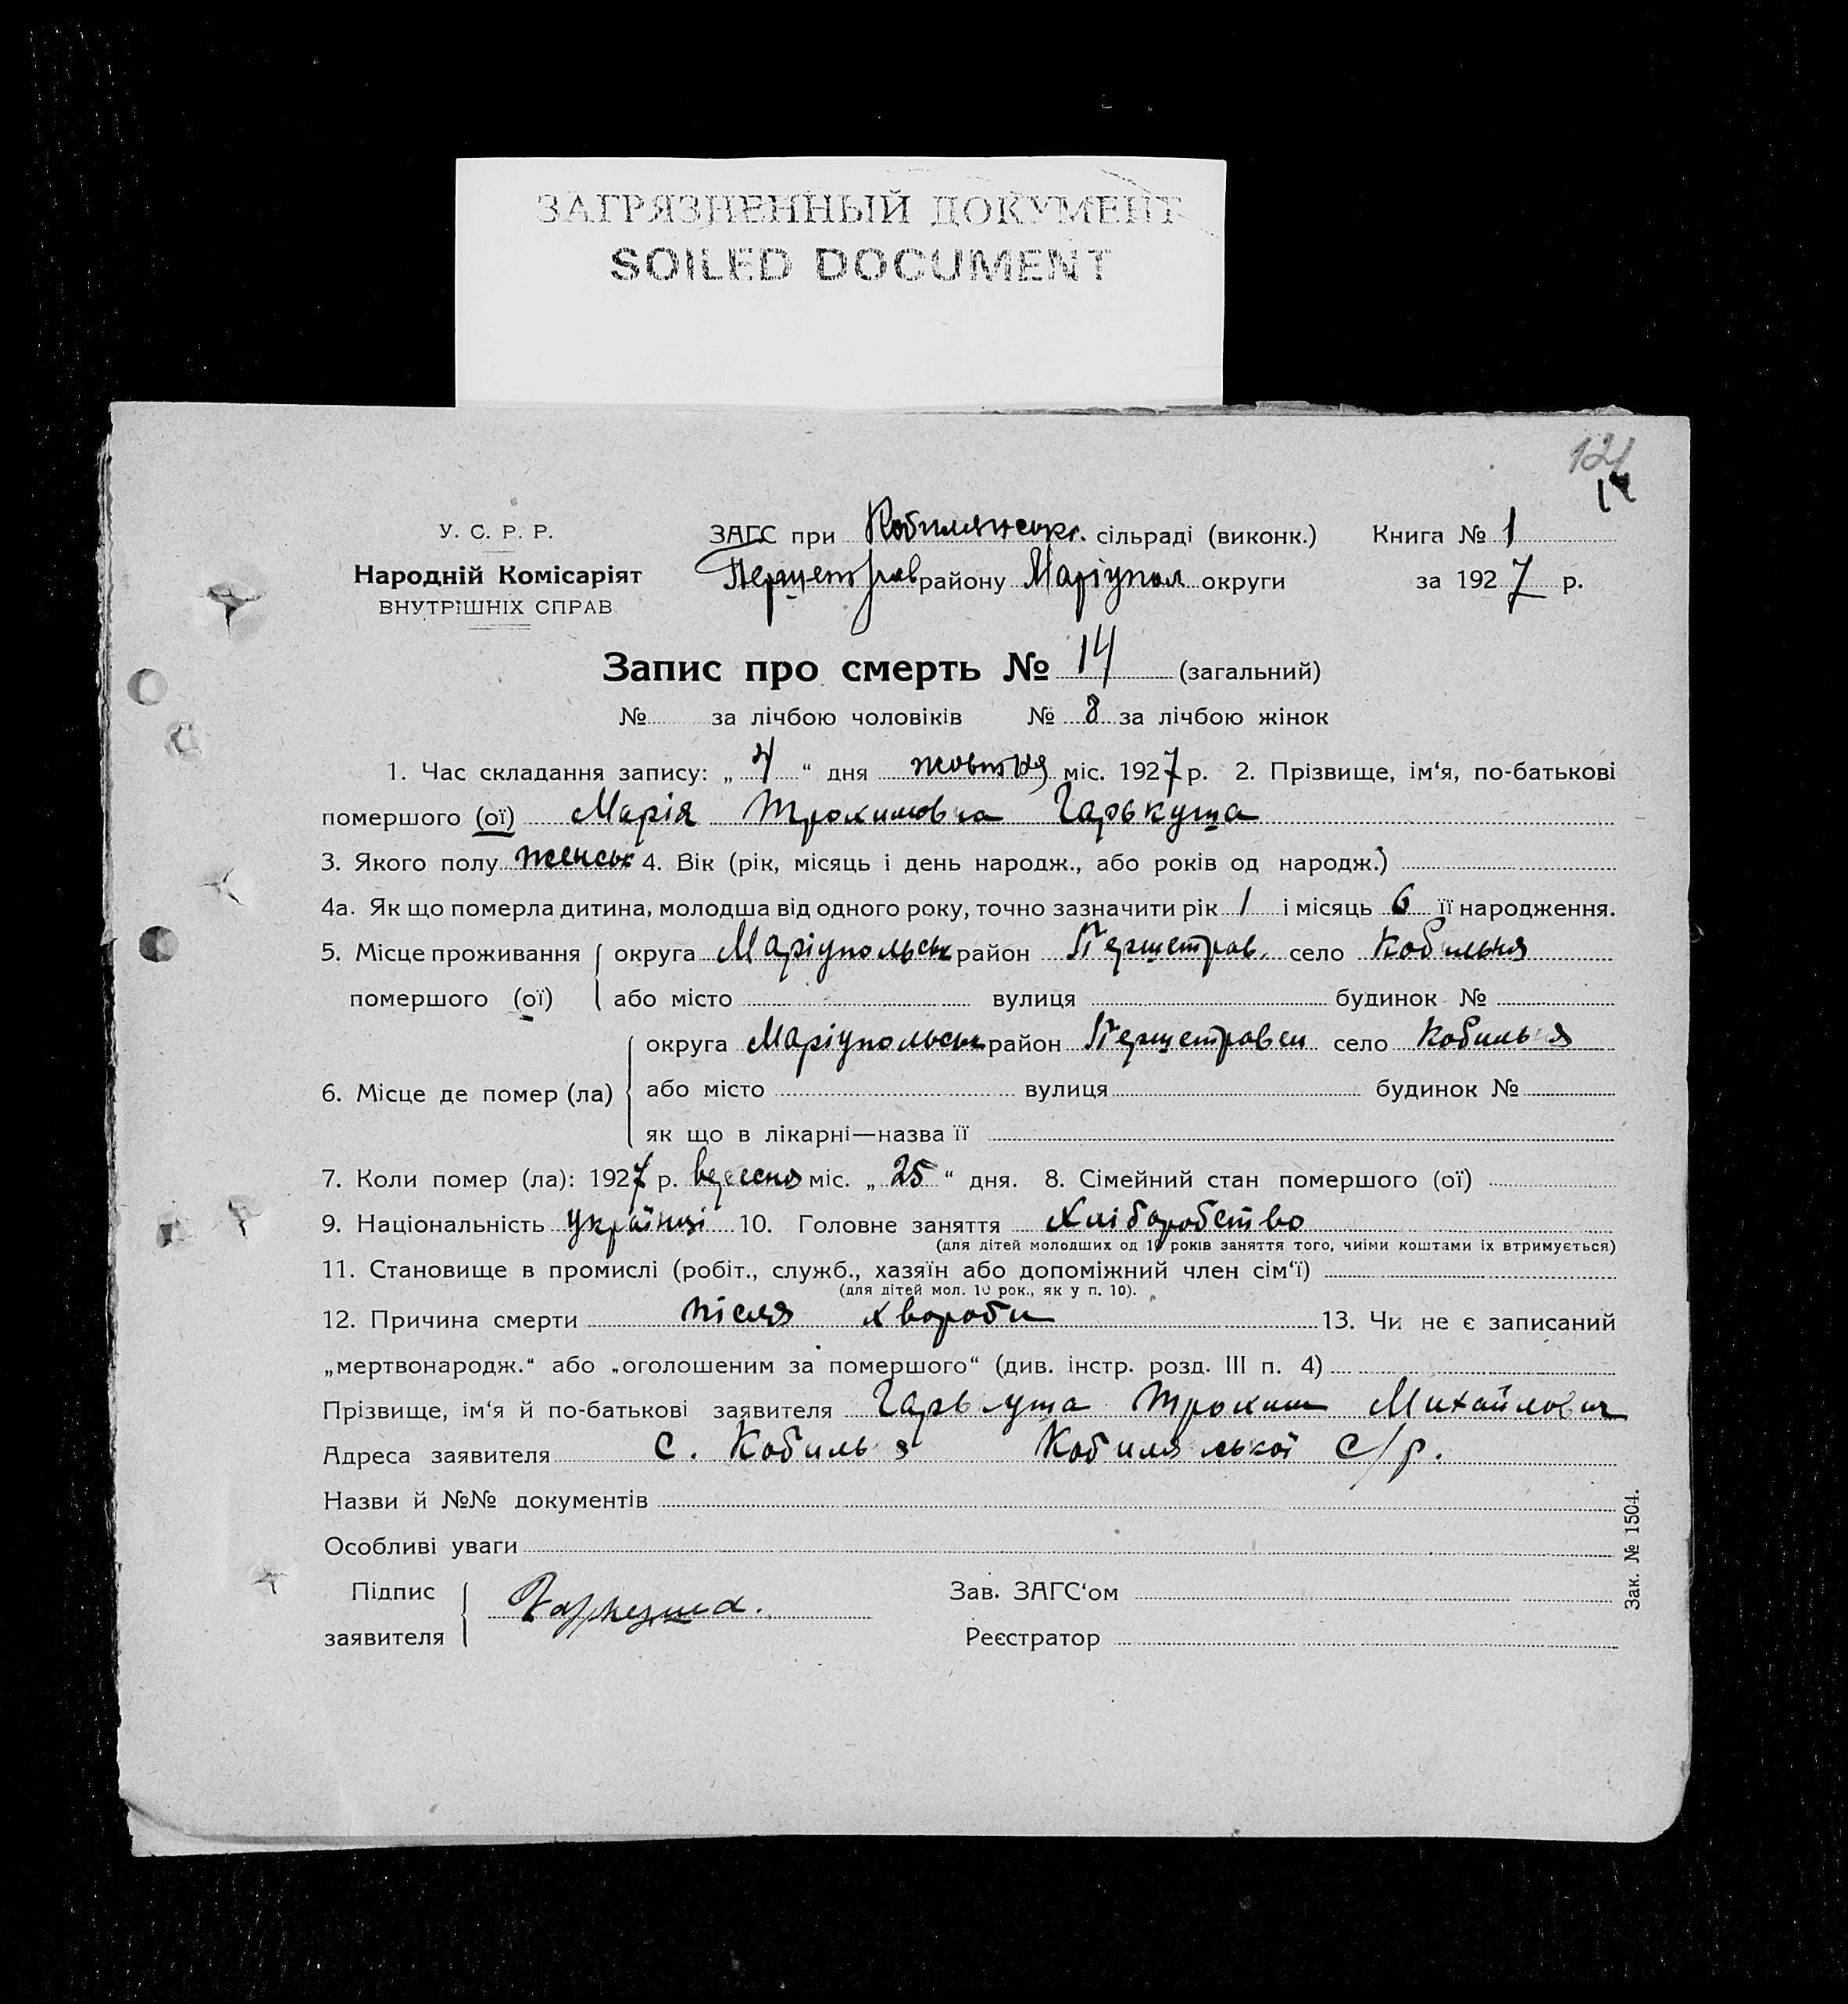 ЗАГРЯЗНЕННЫЙ ДОКУМЕНТ
SOILED DOCUMENT
121
14
У. С. Р. Р.
Народній Комісаріят
ВНУТРІШНІХ СПРАВ
ЗАГС при Кобилянськ. сільраді (виконк.) Книга № 1
Першетрав району Маріупол округи за 1927 р.
Запис про смерть № 14 (загальний)
№ за лічбою чоловіків № 8 за лічбою жінок
1. Час складання запису: „ 4 “ дня жовтня міс. 1927 р. 2. Прізвище, ім‘я, по-батькові
помершого (ої) Марія Трохимовна Гарькуша
3. Якого полу женськ 4. Вік (рік, місяць і день народж., або років од народж.)
4а. Як що померла дитина, молодша від одного року, точно зазначити рік 1 і місяць 6 її народження.
5. Місце проживання округа Маріупольськ район Першетрав. село Кобильня
помершого (ої) або місто вулиця будинок №
6. Місце де помер (ла) округа Маріупольськ район Першетравен село Кобильня
або місто вулиця будинок №
як що в лікарні—назва її
7. Коли помер (ла): 1927 р. вересня міс. „ 25 “ дня. 8. Сімейний стан помершого (ої)
9. Національність українці 10. Головне заняття Хліборобство
(для дітей молодших од 10 років заняття того, чиїми коштами їх втримується)
11. Становище в промислі (робіт., служб., хазяїн або допоміжний член сім‘ї)
(для дітей мол. 10 рок., як у п. 10).
12. Причина смерти після хвороби 13. Чи не є записаний
„мертвонародж.“ або „оголошеним за помершого“ (див. інстр. розд. III п. 4)
Прізвище, ім‘я й по-батькові заявителя Гарькуша Трохим Михайлович
Адреса заявителя с. Кобильня Кобилянської с/р.
Назви й №№ документів
Особливі уваги
Підпис заявителя Гаркуша.
Зав. ЗАГС‘ом
Реєстратор
Зак. № 1504.